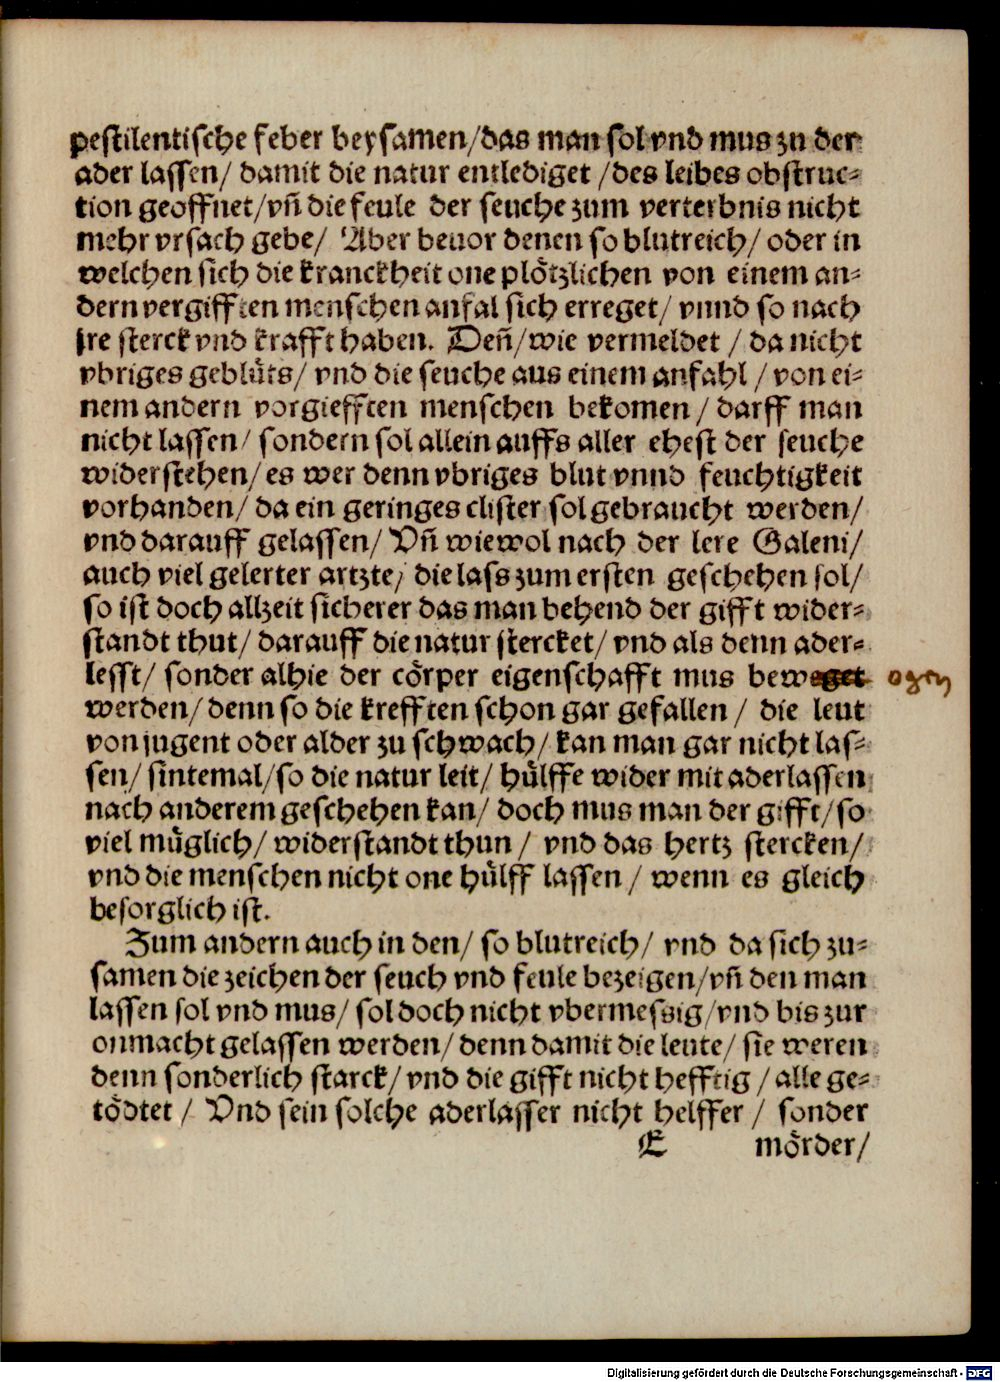 pestilentische feber beysamen/das man sol vnd mus zu der
ader lassen/ damit die natur entlediget /des leibes obstruc⸗
tion geoffnet/vn̄ die feule der seuche zum verterbnis nicht
mehr vrsach gebe/ Aber beuor denen so blutreich/ oder in
welchen sich die kranckheit one plötzlichen von einem an⸗
dern vergifften menschen anfal sich erreget/ vnnd so nach
jre sterck vnd krafft haben. Den̄/wie vermeldet / da nicht
vbriges geblüts/ vnd die seuche aus einem anfahl / von ei⸗
nem andern vorgiefften menschen bekomen / darff man
nicht lassen/ sondern sol allein auffs aller ehest der seuche
widerstehen/ es wer denn vbriges blut vnnd feuchtigkeit
vorhanden/ da ein geringes clister sol gebraucht werden/
vnd darauff gelassen/ Vn̄ wiewol nach der lere Galeni/
auch viel gelerter artzte/ die lass zum ersten geschehen sol/
so ist doch allzeit sicherer das man behend der gifft wider⸗
standt thut/ darauff die natur stercket/ vnd als denn ader⸗
lesst/ sonder alhie der cörper eigenschafft mus beweget ogen
werden/ denn so die krefften schon gar gefallen / die leut
von jugent oder alder zu schwach/ kan man gar nicht las⸗
sen/ sintemal/so die natur leit/ hülffe wider mit aderlassen
nach anderem geschehen kan/ doch mus man der gifft/ so
viel müglich/ widerstandt thun / vnd das hertz stercken/
vnd die menschen nicht one hülff lassen / wenn es gleich
besorglich ist.
Zum andern auch in den/ so blutreich/ vnd da sich zu⸗
samen die zeichen der seuch vnd feule bezeigen/vn̄ den man
lassen sol vnd mus/ sol doch nicht vbermessig/vnd bis zur
onmacht gelassen werden/ denn damit die leute/ sie weren
denn sonderlich starck/ vnd die gifft nicht hefftig / alle ge⸗
tödtet / Vnd sein solche aderlasser nicht helffer / sonder
E mörder/
Digitalisierung gefördert durch die Deutsche Forschungsgemeinschaft - DFG